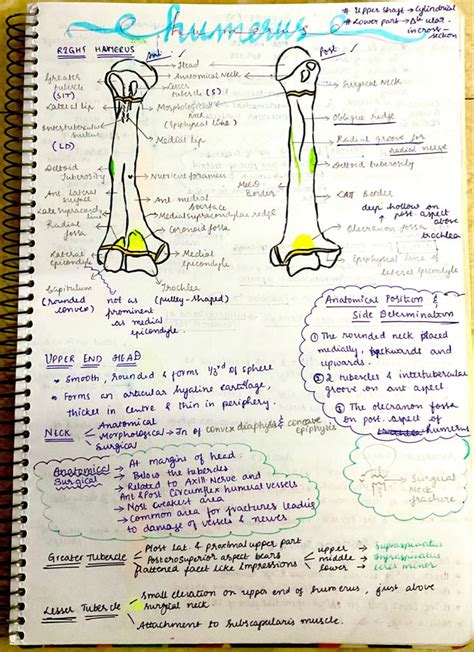 humerus
# Upper shaft → Cylindrical
# Lower part → Δular
in cross-
section
RIGHT HUMERUS
Ant.
Post.
Greater
tubercle
(SIT)
Lateral lip
Intertubercular
sulcus
(LD)
Deltoid
Tuberosity
Ant lateral
surface
Late supracondylar
Radial
fossa
Lateral
epicondyle
Capitulum
(rounded
convex)
Head
Anatomical Neck
Lesser
tubercle (S)
Morphological
Neck
(Epiphyseal line)
Medial lip
Nutrient foramen
Ant medial
surface
Medial supracondylar ridge
Coronoid fossa
Medial
epicondyle
Trochlea
(pulley-shaped)
not as
prominent
as medial
epicondyle.
Surgical Neck
Oblique ridge
Radial groove for
radial nerve
Deltoid tuberosity
Med
Border
Lat Border
deep hollow on
post. aspect
above
trochlea
Olecranon fossa
Epiphyseal line of
lateral epicondyle
Anatomical Position &
Side Determination
① The rounded neck placed
medially, backwards and
upwards.
② 2 tubercles & intertubercular
groove on ant aspect
③ The olecranon fossa
on post. aspect of
humerus
UPPER END HEAD
• Smooth, rounded & forms 1/3rd of sphere
• Forms an articular hyaline cartilage,
thicker in centre & thin in periphery.
NECK
Anatomical
Morphological → Jn of convex diaphysis & concave
epiphysis
Surgical
Anatomical
Surgical
→ At margins of head
→ Below the tubercles
→ Related to Axill. Nerve and
Ant & Post Circumflex humeral vessels
→ Most weakest area
→ Common area for fractures leading
to damage of vessels & nerves
Surgical
Neck
fracture
Greater Tubercle
Most lat. & proximal upper part
Posterosuperior aspect bears
flattened facet like Impressions
upper → Supraspinatus
middle → Infraspinatus
lower → teres minor
Lesser Tubercle
Small elevation on upper end of humerus, just above
surgical neck
Attachment to subscapularis muscle.